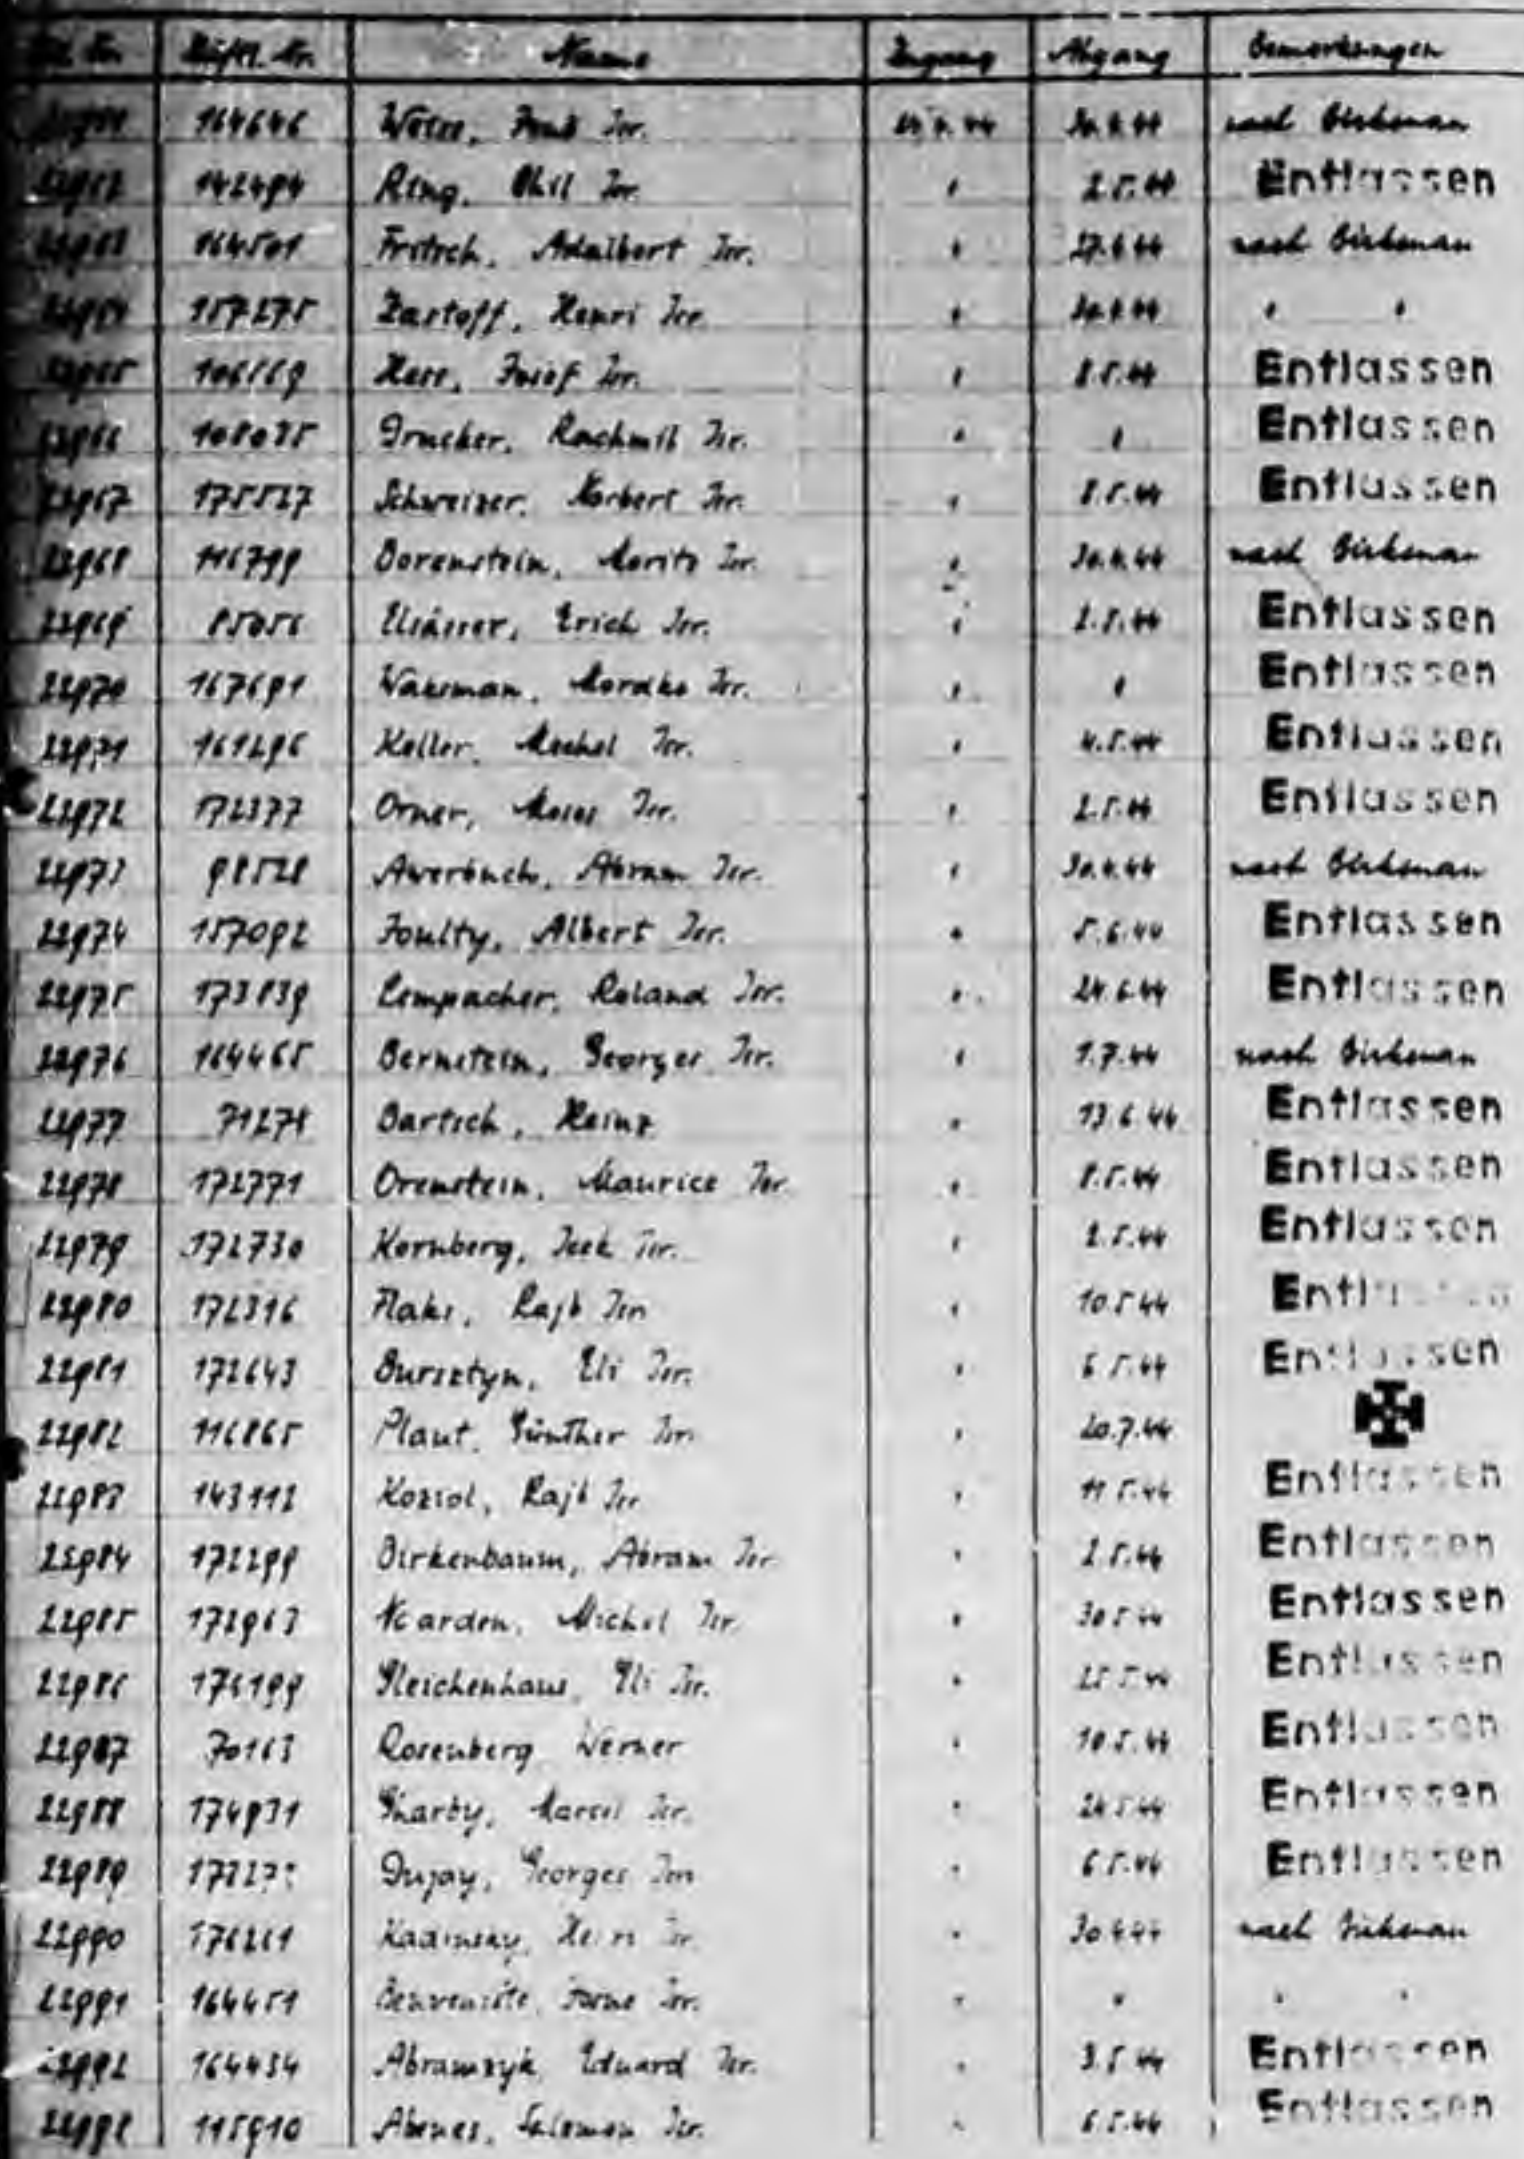 Häftl. Nr. Name Zugang Abgang Bemerkungen
164646 Isr. 30.4.44 nach Birkenau
142494 Ring, Isr. " 2.5.44 Entlassen
164501 Fritsch, Adalbert Isr. " 27.6.44 nach Birkenau
22964 157275 Henri Isr. " 30.4.44 " "
22965 106569 Josef Isr. " 8.5.44 Entlassen
22966 Rachmil Isr. " " Entlassen
22967 175527 Schweizer, Norbert Isr. " 8.5.44 Entlassen
22968 116799 Borenstein, Moritz Isr. " 30.4.44 nach Birkenau
22969 Elsässer, Erich Isr. " 2.5.44 Entlassen
22970 167691 Waksman, Mordko Isr. " " Entlassen
22971 161296 Keller, Mechel Isr. " 4.5.44 Entlassen
22972 172377 Orner, Moses Isr. " 2.5.44 Entlassen
22973 98528 Awerbuch, Abram Isr. " 30.4.44 nach Birkenau
22974 157092 Foulty, Albert Isr. " 5.6.44 Entlassen
22975 173839 Lempacher, Roland Isr. " 24.6.44 Entlassen
22976 164465 Bernstein, Georges Isr. " 1.7.44 nach Birkenau
22977 Bartsch, Heinz " 13.6.44 Entlassen
22978 172771 Orenstein, Maurice Isr. " 8.5.44 Entlassen
22979 172730 Kornberg, Icek Isr. " 2.5.44 Entlassen
22980 172316 Flaks, Rajb Isr. " 10.5.44 Entlassen
22981 172643 Bursztyn, Eli Isr. " 6.5.44 Entlassen
22982 116865 Plaut, Günther Isr. " 20.7.44
22983 143112 Koziol, Rajb Isr. " 11.5.44 Entlassen
22984 172299 Birkenbaum, Abram Isr. " 2.5.44 Entlassen
22985 172963 Michel Isr. " 30.5.44 Entlassen
22986 176199 Gleichenhaus, Eli Isr. " 25.5.44 Entlassen
22987 70163 Rosenberg Werner " 10.5.44 Entlassen
22988 174931 Gharby, Marcel Isr. " 24.5.44 Entlassen
22989 Dujay, Georges Isr. " 6.5.44 Entlassen
22990 176261 " 30.4.44 nach Birkenau
22991 164451 Benveniste, Isr. " " " "
22992 164434 Abramzyk Eduard Isr. " 3.5.44 Entlassen
115910 Salomon Isr. " 6.5.44 Entlassen